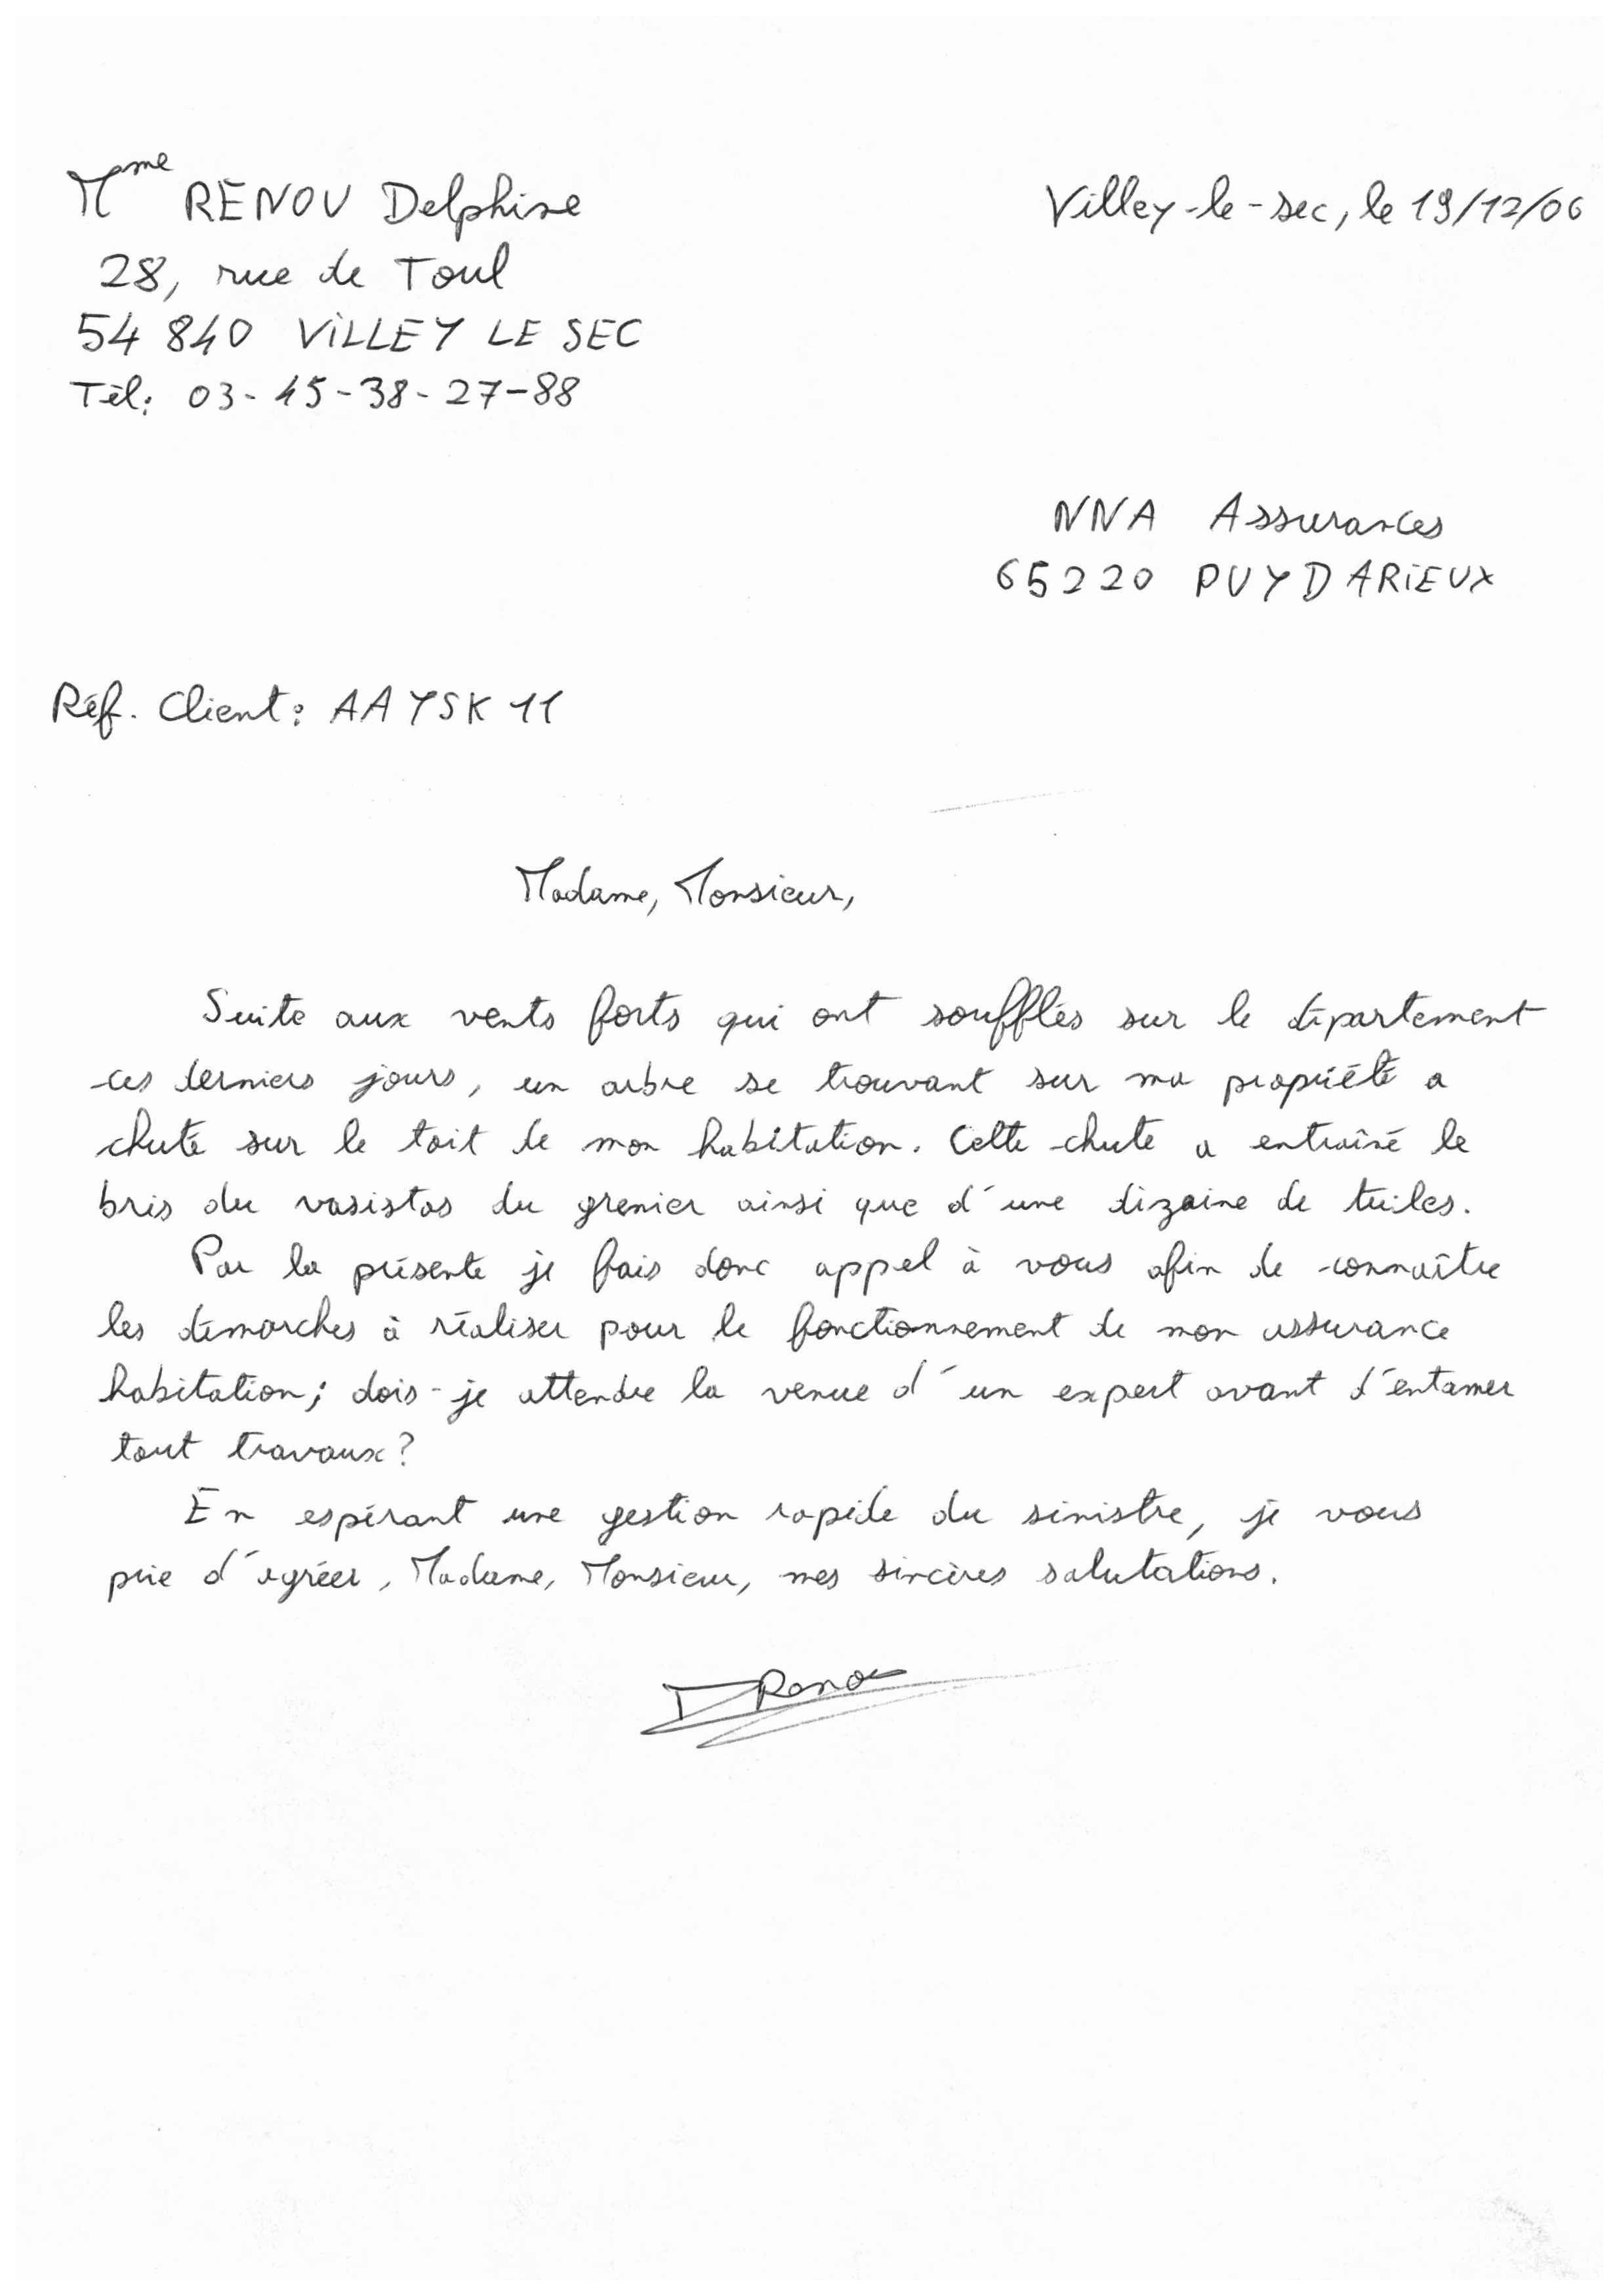 Mme RENOU Delphine
28, rue de Toul
54 840 VILLEY LE SEC
Tél: 03-45-38-27-88
Villey-le-sec, le 19/12/06
NNA Assurances
65220 PUYDARIEUX
Réf. Client: AAYSK 11
Madame, Monsieur,
Suite aux vents forts qui ont soufflés sur le département
ces derniers jours, un arbre se trouvant sur ma propriété a
chuté sur le toit de mon habitation. Cette chute a entraîné le
bris du vasistas du grenier ainsi que d'une dizaine de tuiles.
Par la présente je fais donc appel à vous afin de connaître
les démarches à réaliser pour le fonctionnement de mon assurance
habitation; dois-je attendre la venue d'un expert avant d'entamer
tout travaux?
En espérant une gestion rapide du sinistre, je vous
prie d'agréer, Madame, Monsieur, mes sincères salutations.
DRenou